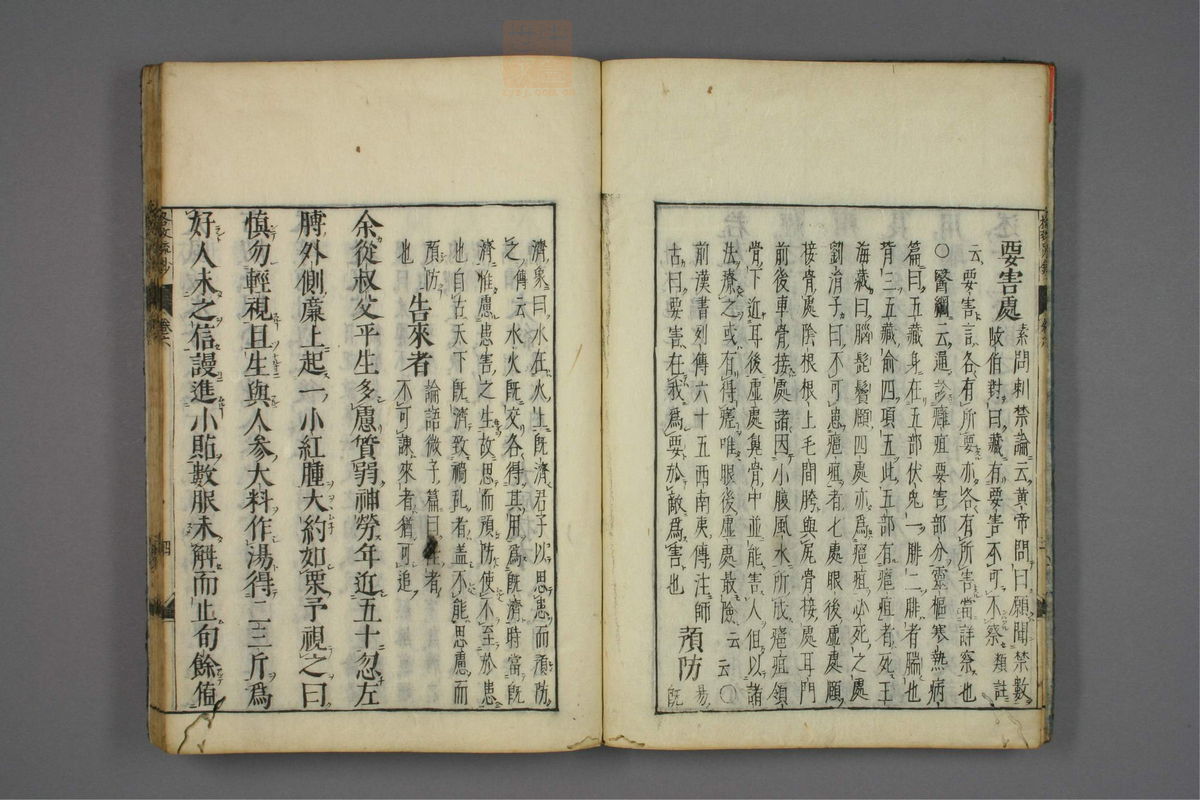 要害處
素問刺禁論云黄帝問曰願聞禁數
岐伯對曰藏有要害不可不察類註
云要害言各有所要亦各有所害當詳察也
○醫綱二云通診癰疽要害部分靈樞寒熱病
篇曰五藏身在五部伏兎一腓二腓者腨也
背三五藏俞四項五此五部有癰疽者死王
海藏曰腦髭鬢頤四處亦為癰疽必死之處
劉涓子曰不可患癰疽者七處眼後虚處頤
接骨處陰根根上毛間胯與尻骨接處耳門
前後車骨接處諸因小腹風水所成癰疽頷
骨下近耳後虚處鼻骨中並能害人但以諸
法療之或有得瘥唯眼後虚處最險云云○
前漢書列傳六十五西南夷傳注師
古曰要害在我為要於敵為害也
預防
易既
濟象曰水在火上既濟君子以思患而預防
之傳云水火既交各得其用為既濟時當既
濟惟慮患害之生故思而預防使不至於患
也自古天下既濟致禍乱者盖不能思慮而
預防
也
告來者
論語微子篇曰者
不可諫來者猶可追
余從叔父平生多慮質弱神勞年近五十忽左
膊外側廉上起一小紅腫大約如栗予視之曰
慎勿輕視且生與人參大料作湯得二三斤為
好人未之信謾進小貼數服未解而止旬餘值
卷六
四